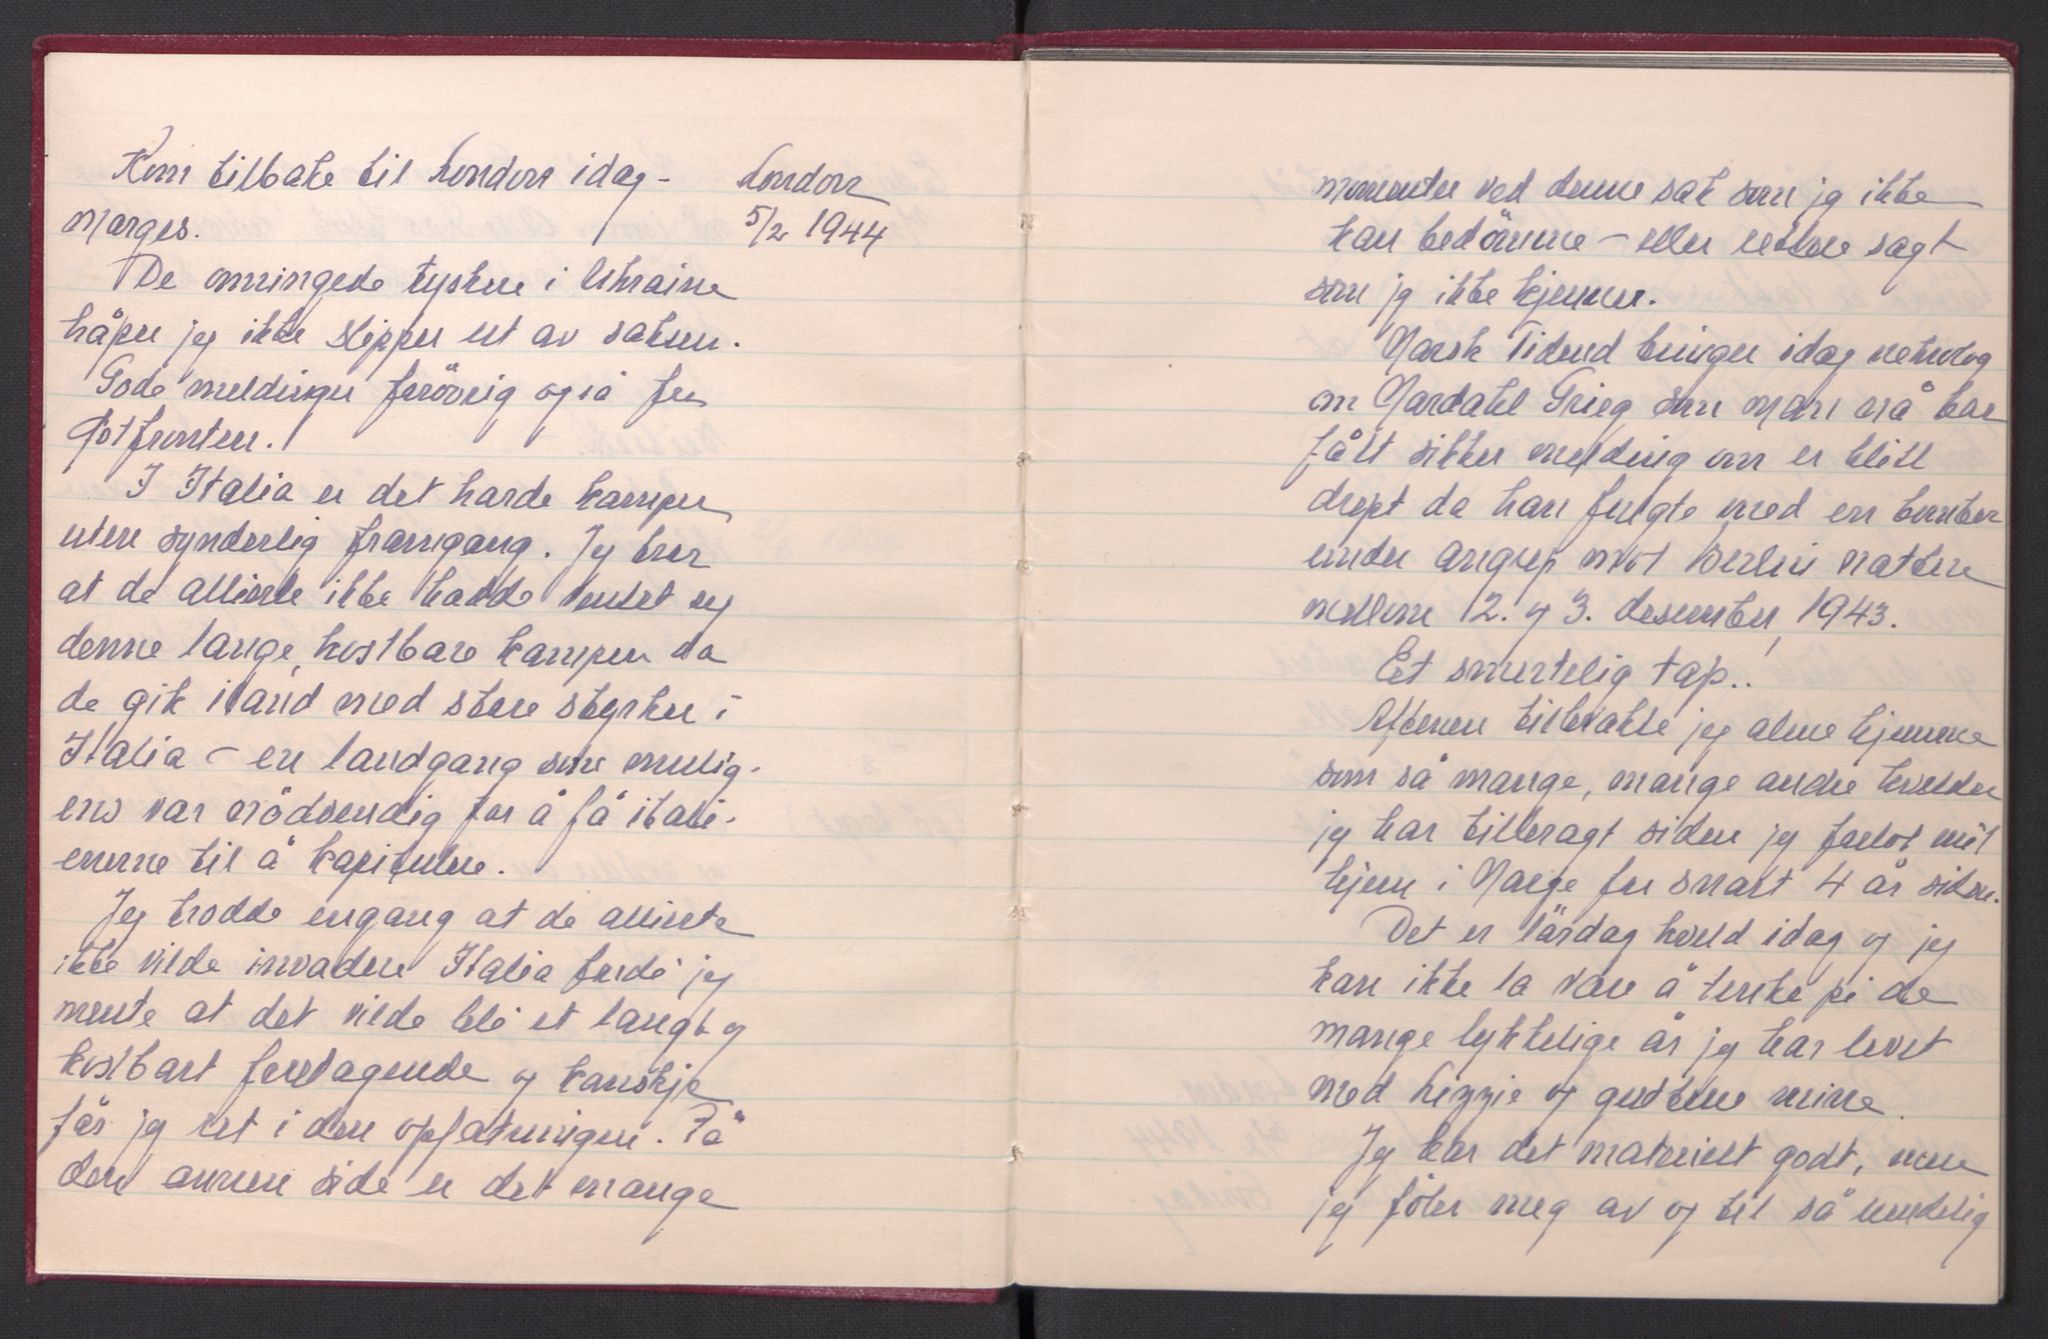 London
5/2 1944
Kom tilbake til London idag-
morges.
De omringede tyskere i Ukraine
håper jeg ikke slipper ut av saksen.
Gode meldinger forövrig også fra
Östfronten.
I Italia er det harde kamper
uten synderlig framgang. Jeg tror
at de allierte ikke hadde tenkt seg
denne lange, kostbare kampen da
de gik iland med store styrker i
Italia – en landgang som mulig-
ens var nödvendig for å få itali-
enerne til å kapitulere.
Jeg trodde engang at de allierte
ikke vilde invadere Italia fordi jeg
mente at det vilde bli et langt og
kostbart foretagende og kanskje
får jeg ret i den opfatningen. På
den annen side er det mange
momenter ved denne sak som jeg ikke
kan bedömme – eller rettere sagt
som jeg ikke kjenner.
Norsk Tidend bringer idag nekrolog
om Nordahl Grieg som man nå har
fått sikker melding om er blitt
drept da han fulgte med en bomber
under angrep mot Berlin natten
mellom 2. og 3. desember, 1943.
Et smertelig tap..
Aftenen tilbrakte jeg alene hjemme
som så mange, mange andre kvelder
jeg har tilbragt siden jeg forlot mit
hjem i Norge for snart 4 år siden.
Det er lördag kveld idag og jeg
kan ikke la være å tenke på de
mange lykkelige år jeg har levet
med Lizzie og guttene mine.
Jeg har det materielt godt, men
jeg föler meg av og til så uendelig